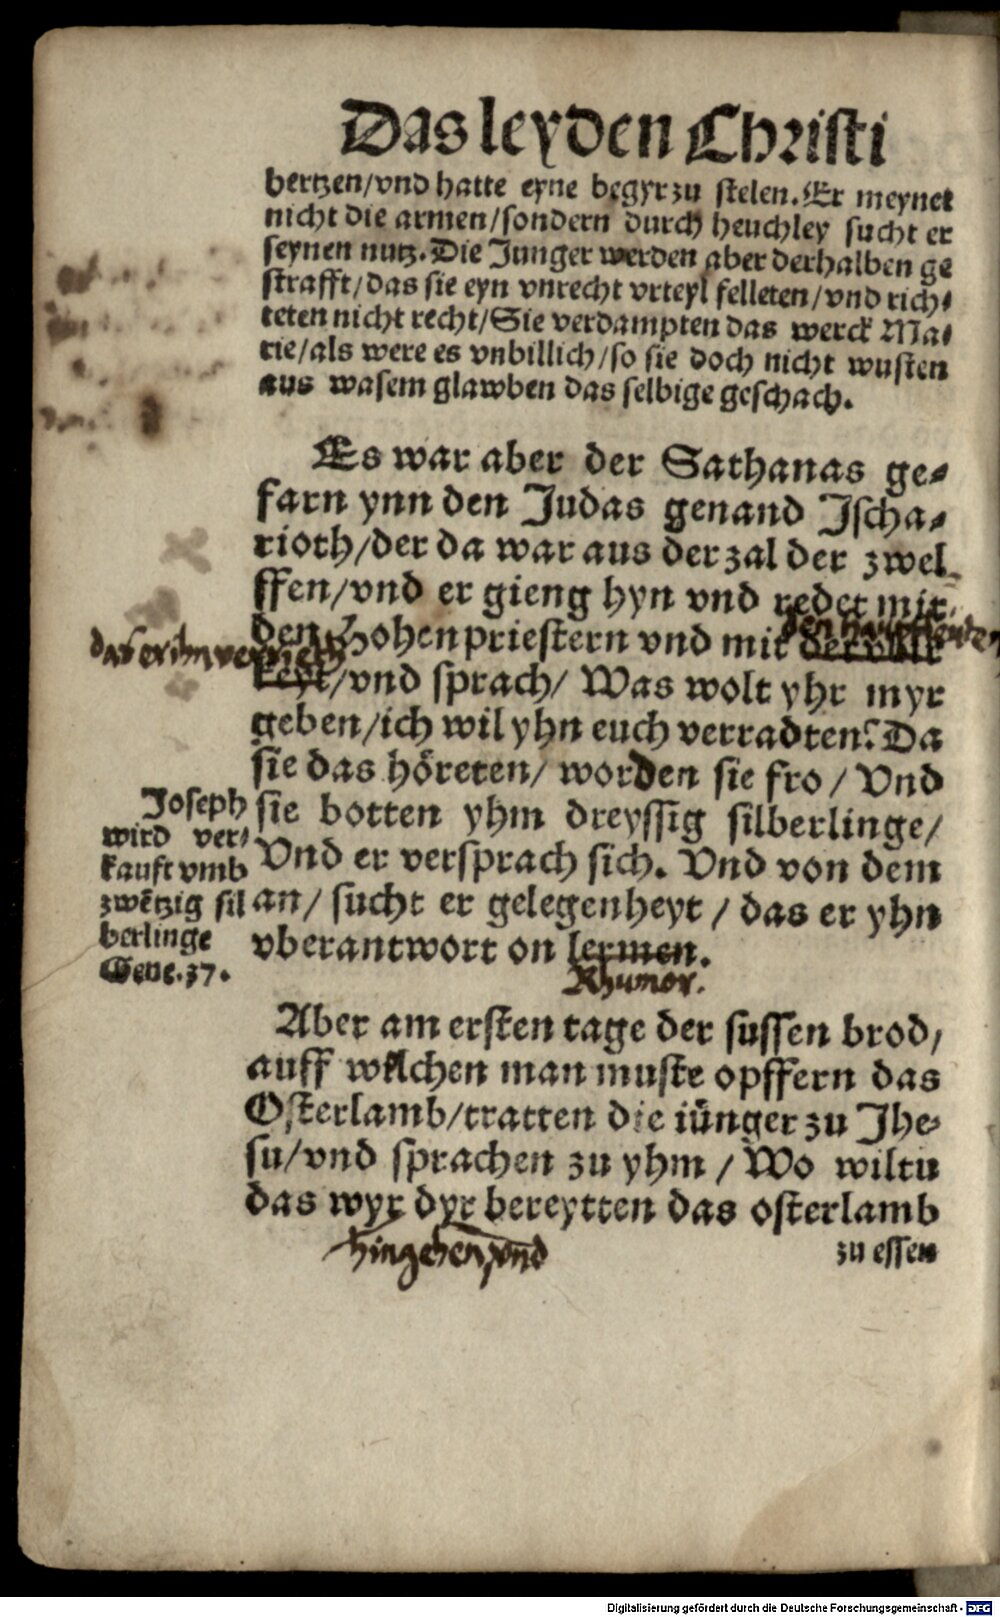 Das leyden Christi
hertzen/vnd hatte eyne begyr zu stelen. Er meynet
nicht die armen/sondern durch heuchley sucht er
seynen nutz. Die Junger werden aber derhalben ge
strafft/das sie eyn vnrecht vrteyl felleten/vnd rich⸗
teten nicht recht/Sie verdampten das werck Ma⸗
rie/als were es vnbillich/so sie doch nicht wusten
aus wasem glawben das selbige geschach.
Es war aber der Sathanas ge⸗
farn ynn den Judas genand Jscha⸗
rioth/der da war aus der zal der zwel
ffen/vnd er gieng hyn vnd redet mit
den Hohenpriestern vnd mit
den haupt
das er ihn
keyt/vnd sprach/ Was wolt yhr myr
geben/ich wil yhn euch verradten? Da
sie das höreten/ worden sie fro / Vnd
sie botten yhm dreyssig silberlinge/
Vnd er versprach sich. Vnd von dem
an/ sucht er gelegenheyt / das er yhn
vberantwort on lermen.
Rhumor.
Joseph
wird ver⸗
kaufft vmb
zwẽtzig sil
berlinge
Gene.37.
Aber am ersten tage der sussen brod/
auff wilchen man muste opffern das
Osterlamb/tratten die iünger zu Jhe⸗
su/vnd sprachen zu yhm / Wo wiltu
das wyr dyr bereytten das osterlamb
hingehen, vnd
zu essen
Digitalisierung gefördert durch die Deutsche Forschungsgemeinschaft - DFG